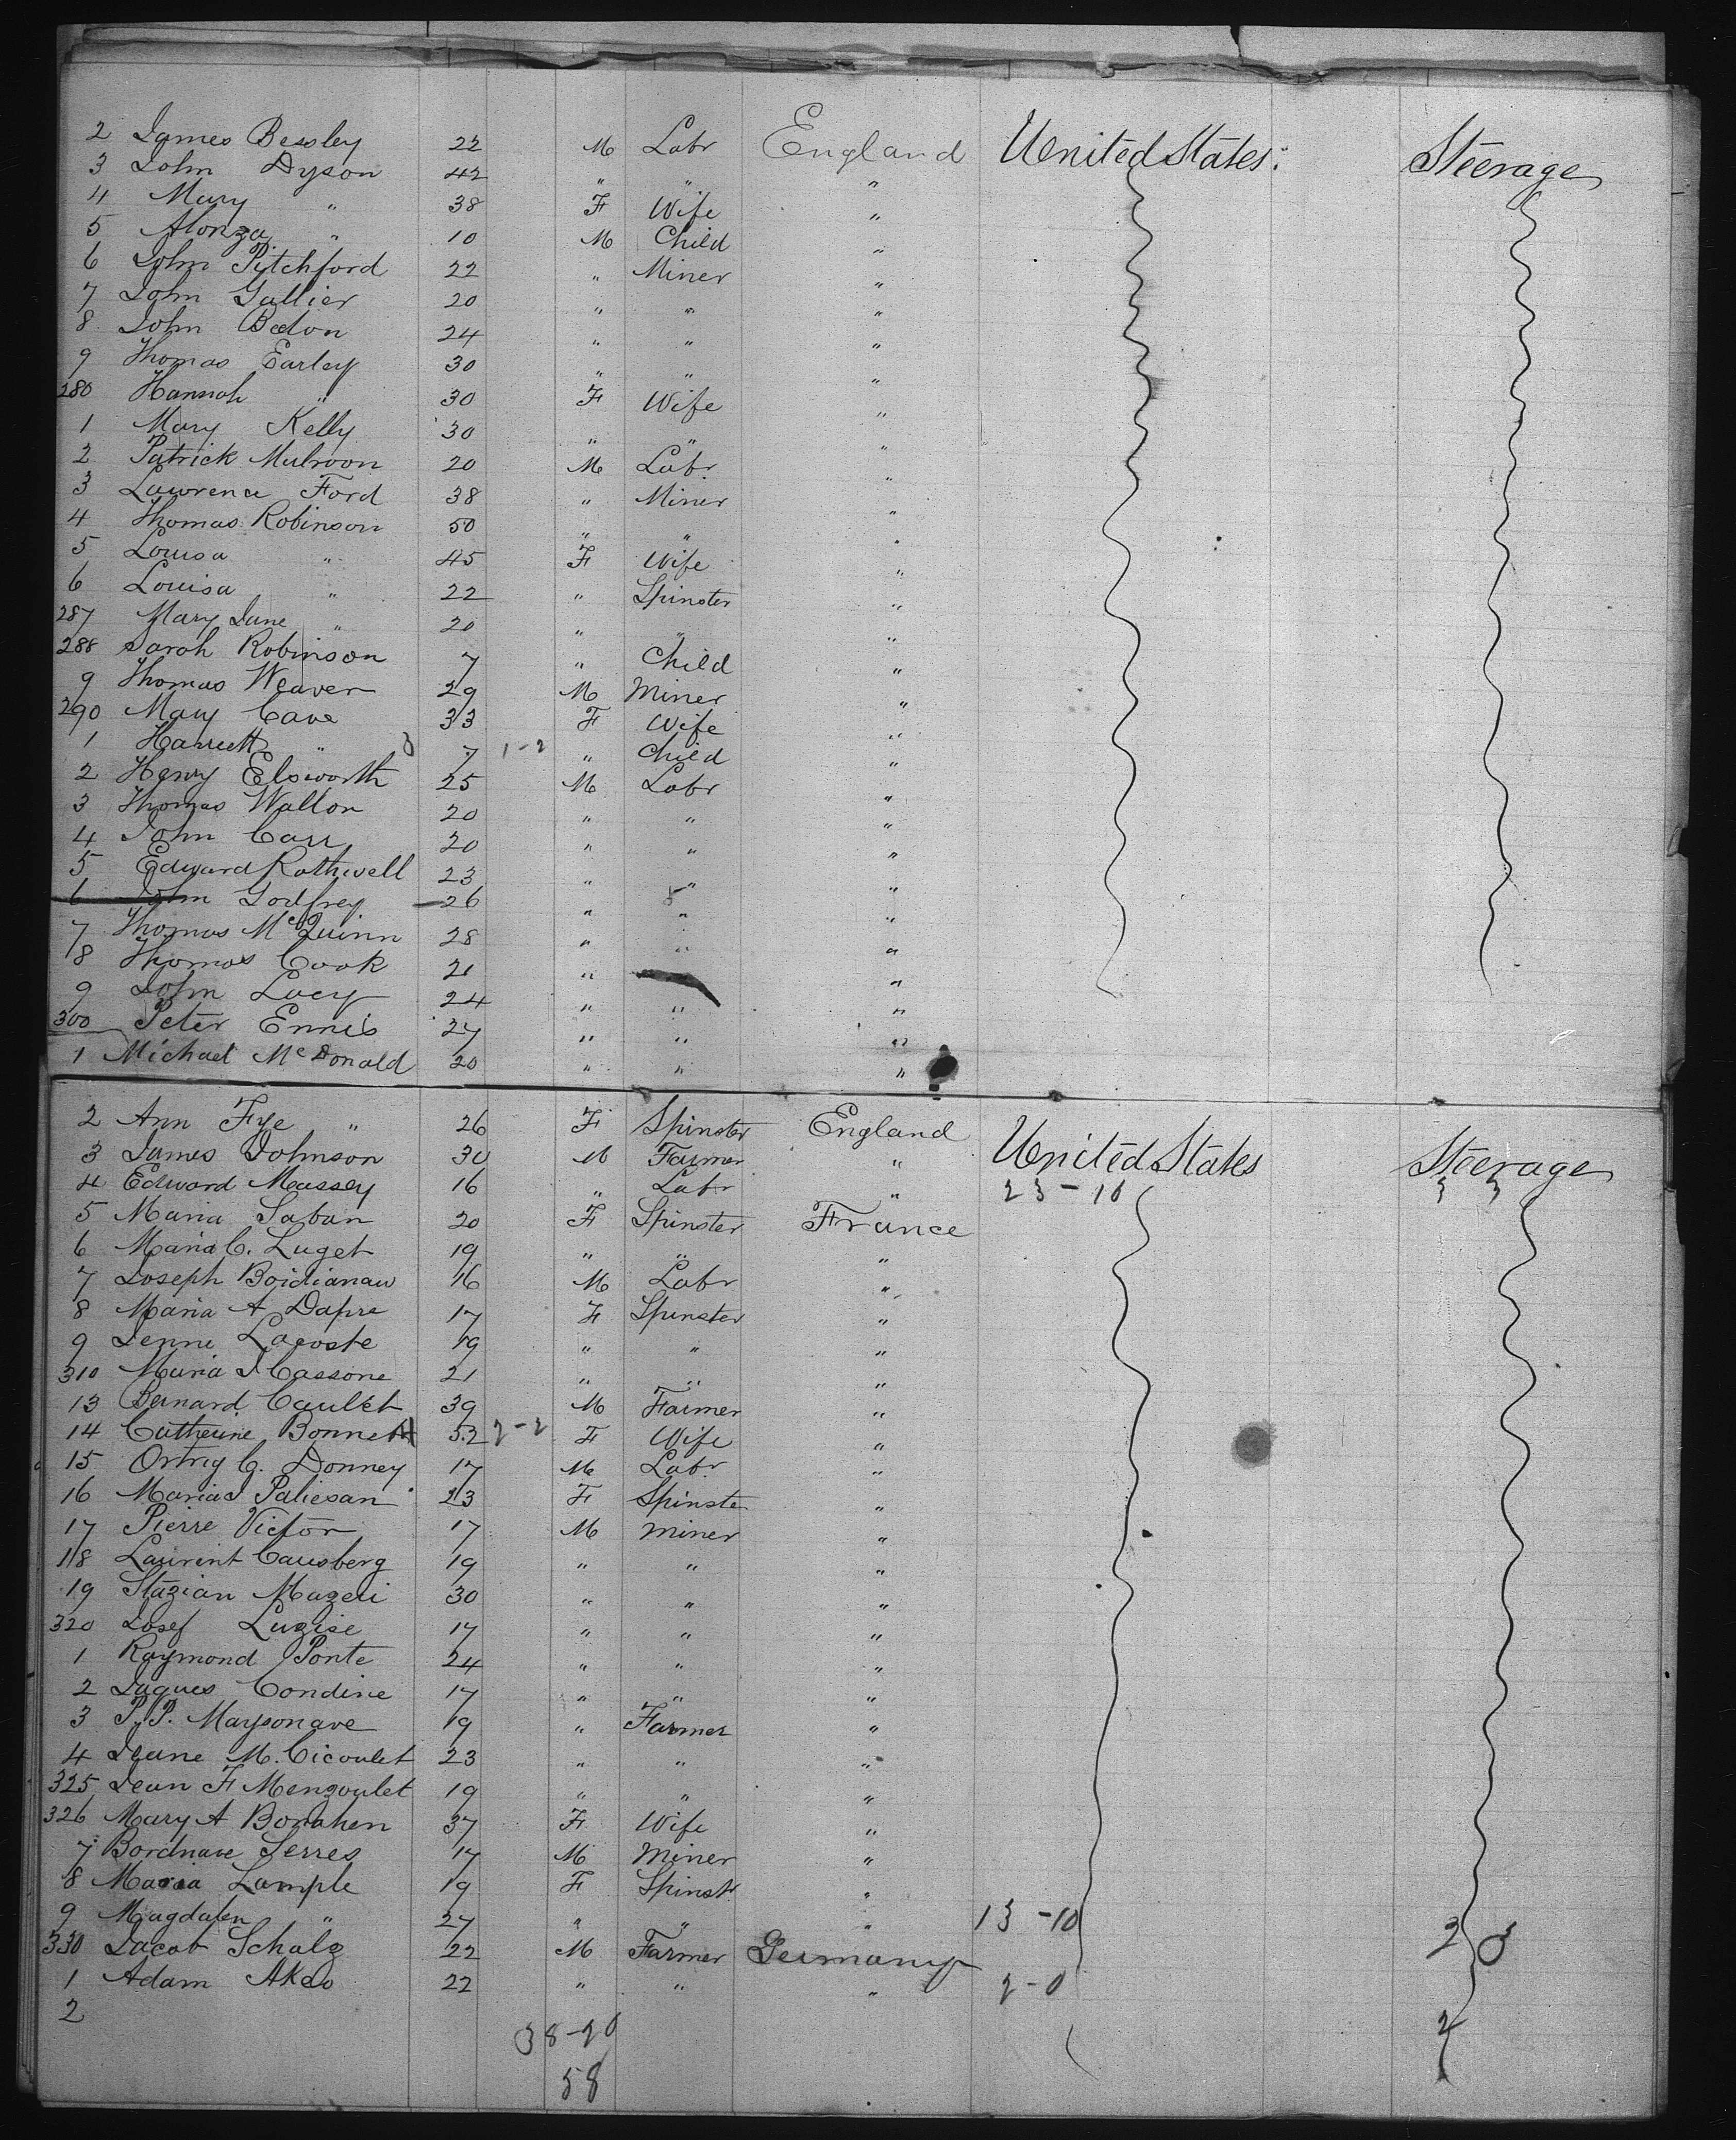 2 James Bessley 22 M Labr England United States: Steerage
3 John Dyson 42 " " "
4 Mary " 38 F Wife "
5 Alonza " 10 M Child "
6 John Pitchford 22 " Miner "
7 John Gallier 20 " " "
8 John Beeton 24 " " "
9 Thomas Earley 30 " " "
280 Hannah " 30 F Wife "
1 Mary Kelly 30 " " "
2 Patrick Mulroon 20 M Labr "
3 Lawrence Ford 38 " Miner "
4 Thomas Robinson 50 " " "
5 Louisa " 45 F Wife "
6 Louisa " 22 " Spinster "
287 Mary Jane " 20 " " "
288 Sarah Robinson 7 " Child "
9 Thomas Weaver 29 M Miner "
290 Mary Cave 33 F Wife "
1 Harriett " 7 1-2 " Child "
2 Henry Elsworth 25 M Labr "
3 Thomas Walton 20 " " "
4 John Carr 20 " " "
5 Edward Rothwell 23 " " "
6 John Godfrey 26 " " "
7 Thomas McQuinn 28 " " "
8 Thomas Cook 21 " "
9 John Lacy 24 " " "
300 Peter Ennis 27 " " "
1 Michael McDonald 20 " " "
2 Ann Fye " 26 F Spinster England United States Steerage
3 James Johnson 30 M Farmer "
4 Edward Massey 16 " Labr " 23-10
5 Maria Saban 20 F Spinster France
6 Maria C. Luget 19 " " "
7 Joseph Boidianaw 16 M Labr "
8 Maria A Dapre 17 F Spinster "
9 Jenne Lacoste 19 " " "
310 Maria J Cassone 21 " " "
13 Bernard Caulet 39 M Farmer "
14 Catherine Bonnett 52 2-2 F Wife "
15 C. Donney 17 M Labr "
16 Maria J Paliesan 23 F Spinste "
17 Pierre Victor 17 M Miner "
18 Laurent Causberg 19 " " "
19 Stazian Mazeri 30 " " "
320 Josef Luzise 17 " " "
1 Raymond Ponte 24 " " "
2 Jaques Condine 17 " " "
3 P. P. Maysonave 19 " Farmer "
4 Jeane M. Cicoulet 23 " " "
325 Jean F Menzoulet 19 " " "
326 Mary A Bonahen 37 F Wife "
7 Bordnave Serres 17 M Miner "
8 Maria Lample 19 F Spinstr "
9 Magdalen " 27 " " " 13-10
330 Jacob Schalz 22 M Farmer Germany
1 Adam Akeo 22 " " " 2-0
2
38-20
58